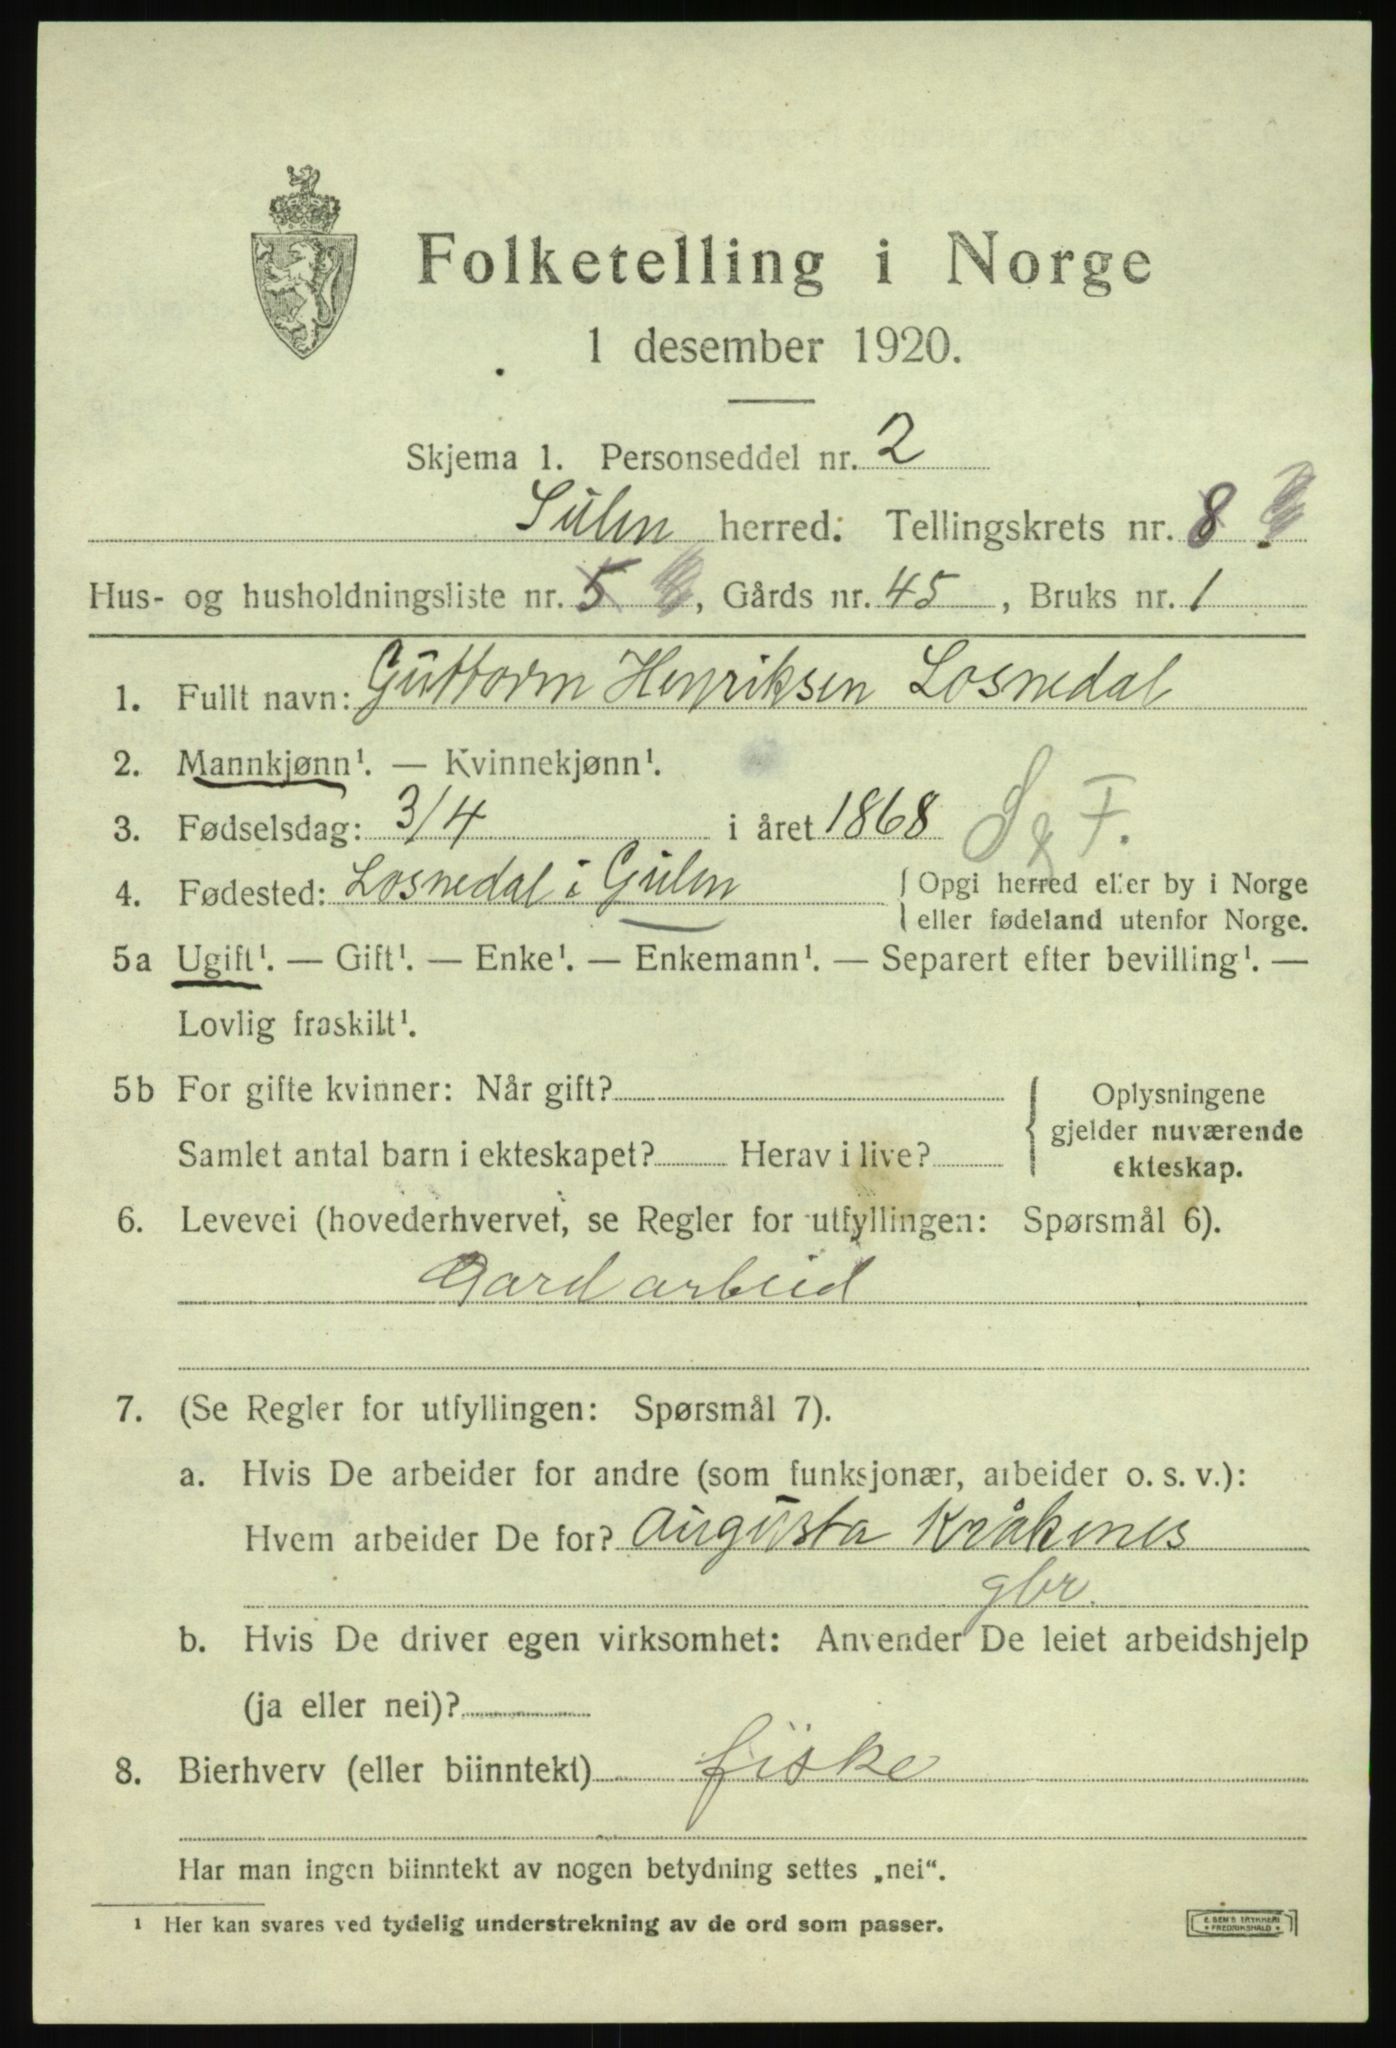 Folketelling i Norge
1 desember 1920.
Skjema 1. Personseddel nr. 2
Sulen herred: Tellingskrets nr. 8
Hus- og husholdningsliste nr. 5, Gårds nr. 45, Bruks nr. 1
1. Fullt navn: Guttorm Henriksen Losnedal
2. Mannkjønn¹. — Kvinnekjønn¹.
3. Fødselsdag: 3/4 i året 1868 S & F.
4. Fødested: Losnedal i Gulen { Opgi herred eller by i Norge
eller fødeland utenfor Norge.
5a Ugift¹. — Gift¹. — Enke¹. — Enkemann¹. — Separert efter bevilling¹. —
Lovlig fraskilt¹.
5b For gifte kvinner: Når gift? { Oplysningene
gjelder nuværende
Samlet antal barn i ekteskapet? Herav i live?
ekteskap.
6. Levevei (hovederhvervet, se Regler for utfyllingen: Spørsmål 6).
Gard arbeid
7. (Se Regler for utfyllingen: Spørsmål 7).
a. Hvis De arbeider for andre (som funksjonær, arbeider o. s. v.):
Hvem arbeider De for? Augusta Kråkenes
gbr.
b. Hvis De driver egen virksomhet: Anvender De leiet arbeidshjelp
(ja eller nei)?
8. Bierhverv (eller biinntekt) fiske
Har man ingen biinntekt av nogen betydning settes „nei“.
¹ Her kan svares ved tydelig understrekning av de ord som passer.
E. SEM'S TRYKKERI
* FREDRIKSHALD *